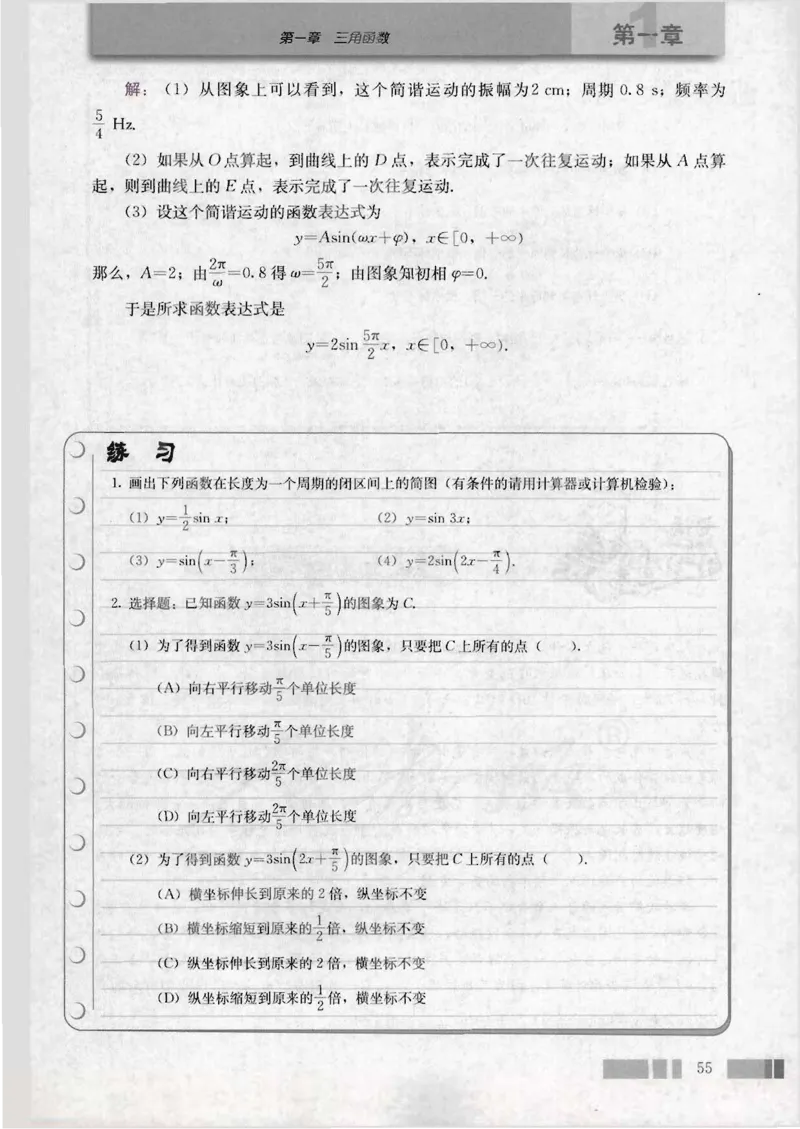 第一章 三角函数
第一章
解：（1）从图象上可以看到，这个简谐运动的振幅为2 cm；周期 0.8 s；频率为
5/4 Hz.
（2）如果从 O 点算起，到曲线上的 D 点，表示完成了一次往复运动；如果从 A 点算
起，则到曲线上的 E 点，表示完成了一次往复运动.
（3）设这个简谐运动的函数表达式为
y=Asin(ωx+φ)，x∈[0，+∞)
那么，A=2；由2π/ω=0.8 得 ω=5π/2；由图象知初相 φ=0.
于是所求函数表达式是
y=2sin 5π/2 x，x∈[0，+∞).
练 习
1. 画出下列函数在长度为一个周期的闭区间上的简图（有条件的请用计算器或计算机检验）：
（1）y=1/2 sin x； （2）y=sin 3x；
（3）y=sin(x-π/3)； （4）y=2sin(2x-π/4).
2. 选择题：已知函数 y=3sin(x+π/5)的图象为 C.
（1）为了得到函数 y=3sin(x-π/5)的图象，只要把 C 上所有的点（ ）.
（A）向右平行移动π/5个单位长度
（B）向左平行移动π/5个单位长度
（C）向右平行移动2π/5个单位长度
（D）向左平行移动2π/5个单位长度
（2）为了得到函数 y=3sin(2x+π/5)的图象，只要把 C 上所有的点（ ）.
（A）横坐标伸长到原来的 2 倍，纵坐标不变
（B）横坐标缩短到原来的1/2倍，纵坐标不变
（C）纵坐标伸长到原来的 2 倍，横坐标不变
（D）纵坐标缩短到原来的1/2倍，横坐标不变
55